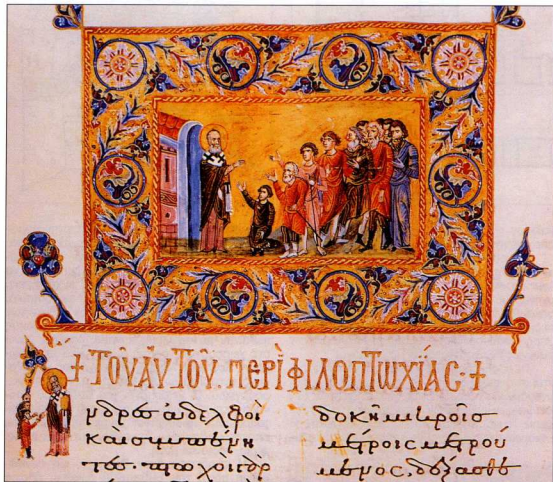 + ΤΟῦ ΑΥΤΟῦ ΠΕΡὶ ΦΙΛΟΠΤΩΧΪ́ΑC · +
νδρες ἀδελφοὶ
καὶ συμπένη
τες· πτωχοὶ γὰρ
δοκῆ μικροῖς
μέτροις μετρού
μενος, δέξασθε